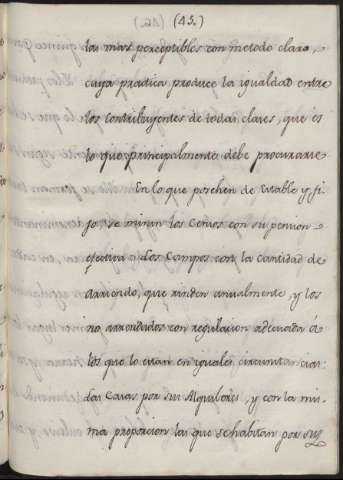 (45.)
las mas perceptibles con metodo claro,
cuya practica produce la igualdad entre
los Contribuyentes de todas clases, que es
lo que principalmente debe procurarse
En lo que poséhen de Estable y fi
jo, se miran los Censos con su pension
efectiva: Los Campos con la cantidad de
Arriendo, que rinden anualmente, y los
no arrendados con regulacion adecuada á
los que lo estan en iguales circunstancias
Las Casas por sus Alquileres, y con la mis
ma proporcion las que se habitan por sus